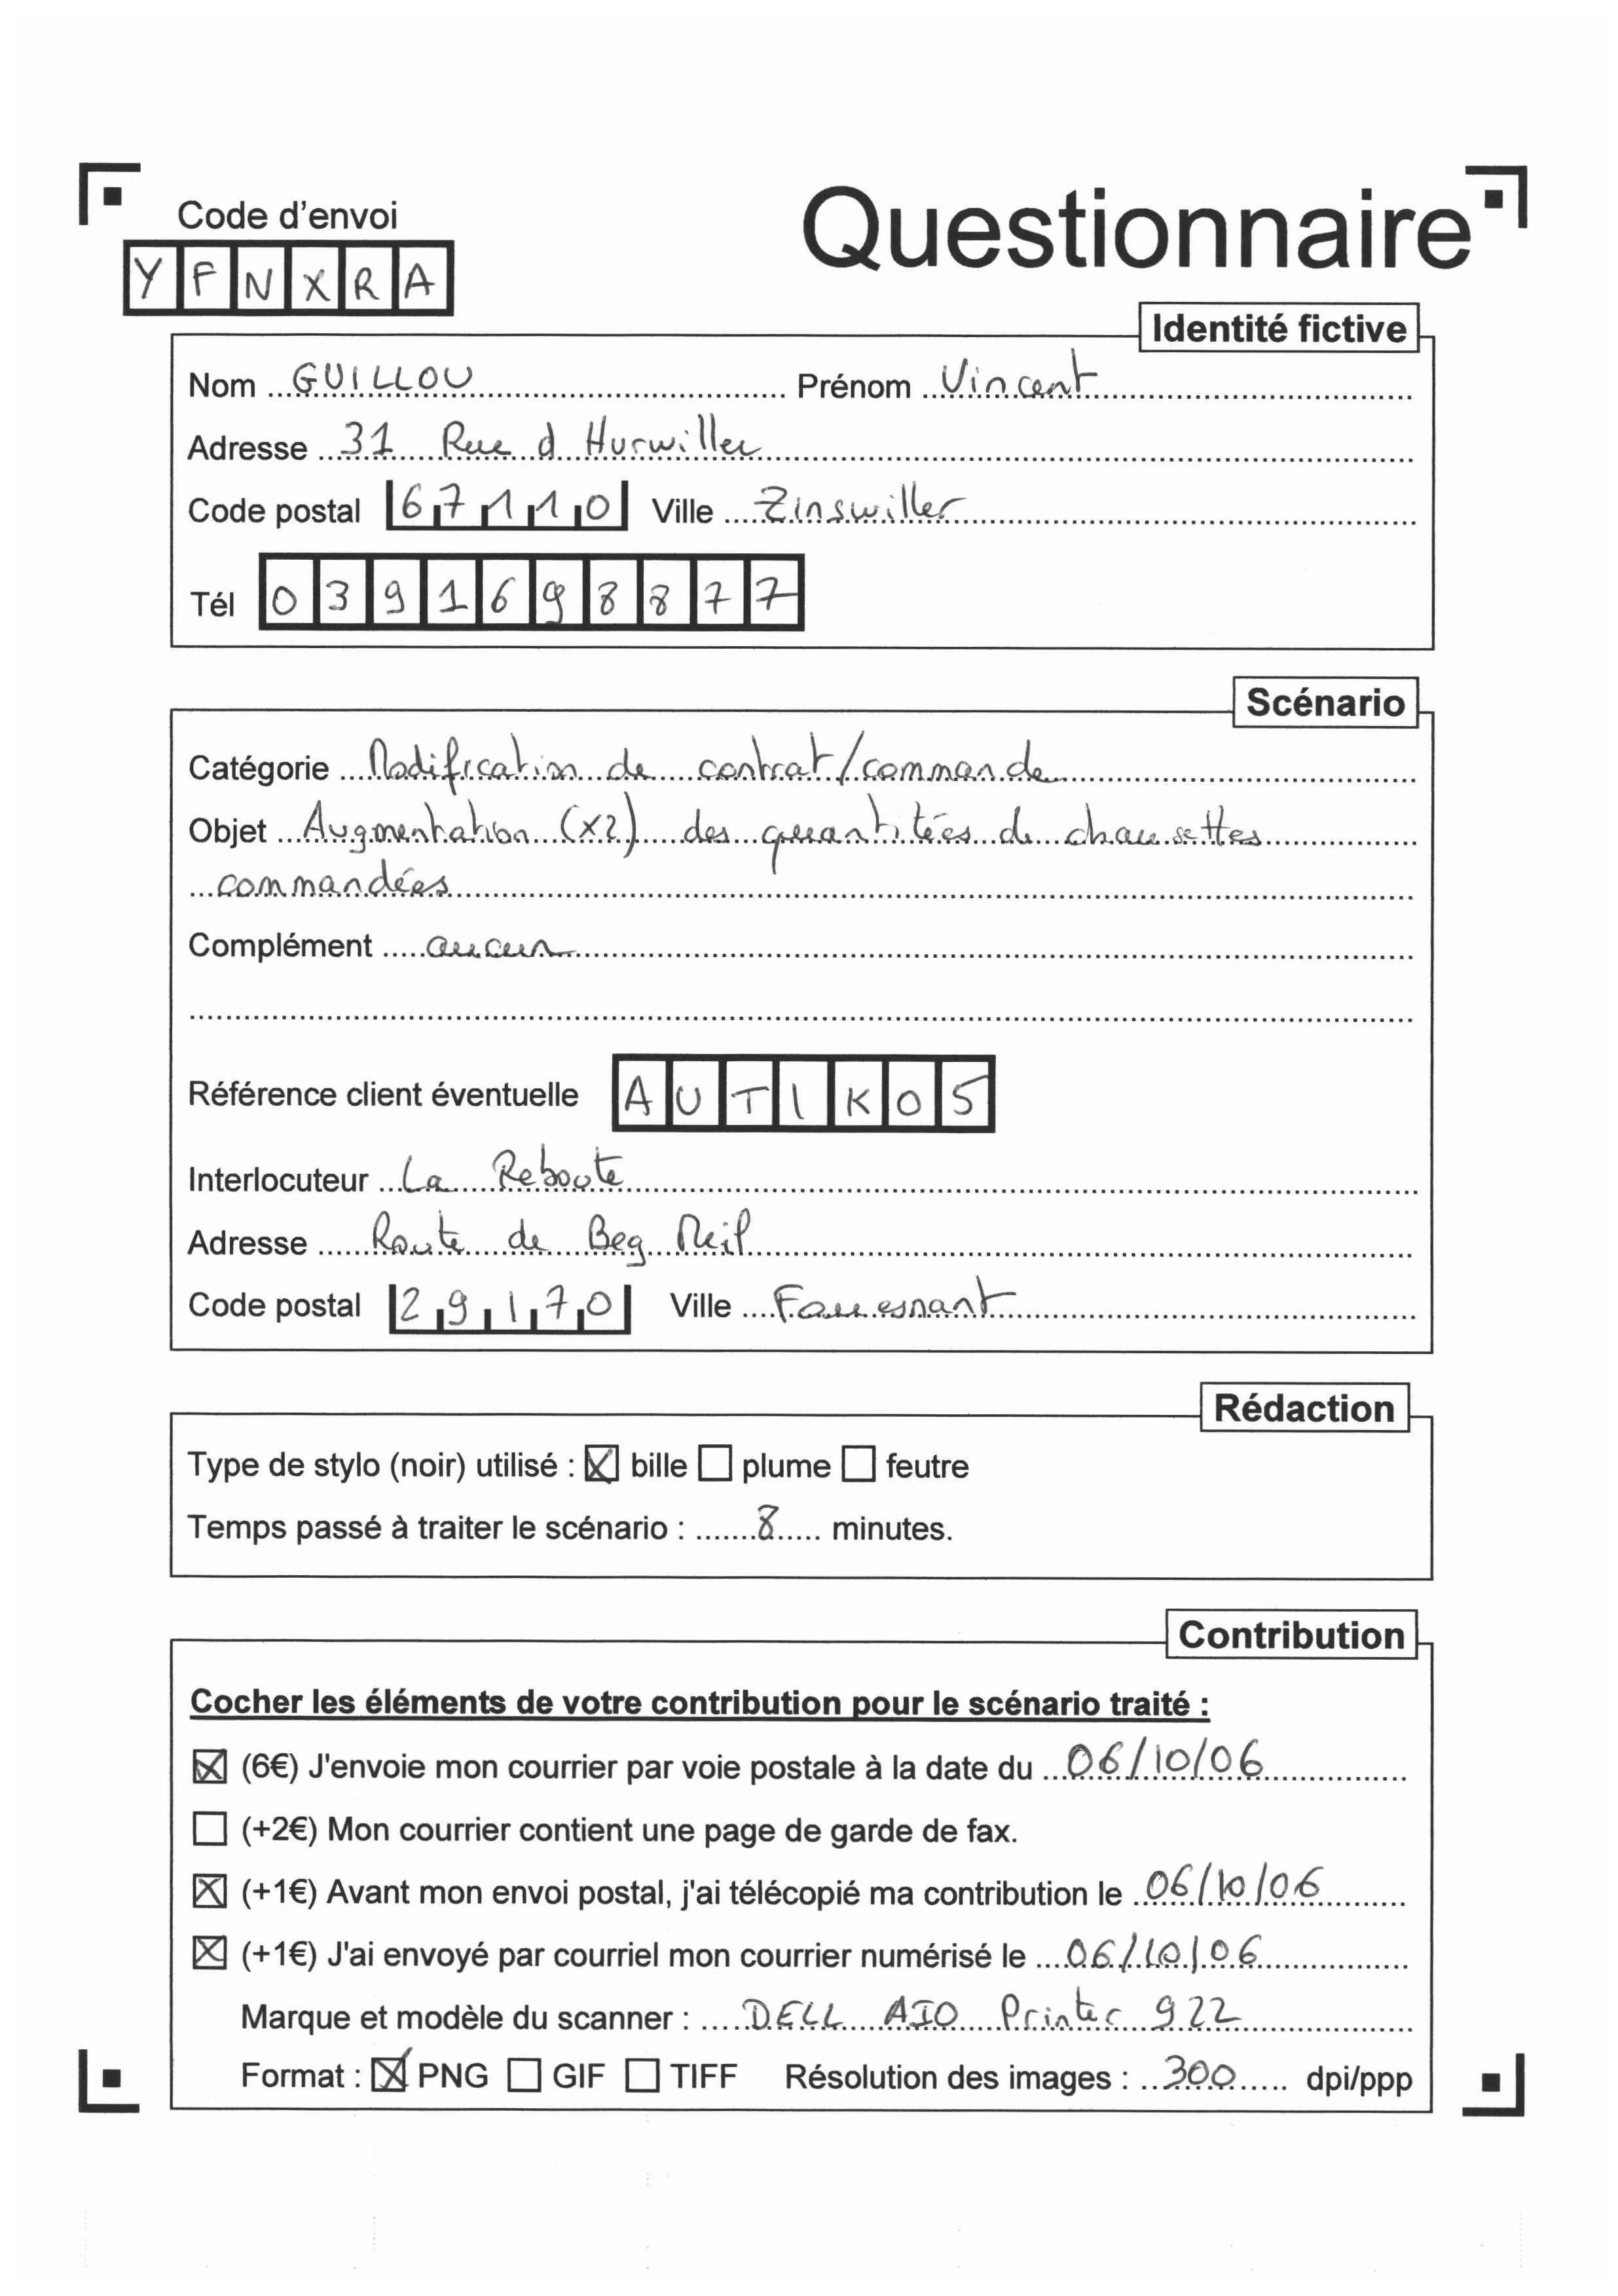 Code d'envoi
Questionnaire
Y F N X R A
Identité fictive
Nom GUILLOU Prénom Vincent
Adresse 31 Rue d Hurwiller
Code postal 67110 Ville Zinswiller
Tél 0391698877
Scénario
Catégorie Modification de contrat/commande
Objet Augmentation (x2) des quantitées de chaussettes
commandées
Complément aucun
Référence client éventuelle AUTIKO5
Interlocuteur La Reboute
Adresse Route de Beg Meil
Code postal 29170 Ville Fouesnant
Rédaction
Type de stylo (noir) utilisé : ☒ bille ☐ plume ☐ feutre
Temps passé à traiter le scénario : 8 minutes.
Contribution
Cocher les éléments de votre contribution pour le scénario traité :
☒ (6€) J'envoie mon courrier par voie postale à la date du 06/10/06
☐ (+2€) Mon courrier contient une page de garde de fax.
☒ (+1€) Avant mon envoi postal, j'ai télécopié ma contribution le 06/10/06
☒ (+1€) J'ai envoyé par courriel mon courrier numérisé le 06/10/06
Marque et modèle du scanner : DELL AIO Printer 922
Format : ☒ PNG ☐ GIF ☐ TIFF Résolution des images : 300 dpi/ppp